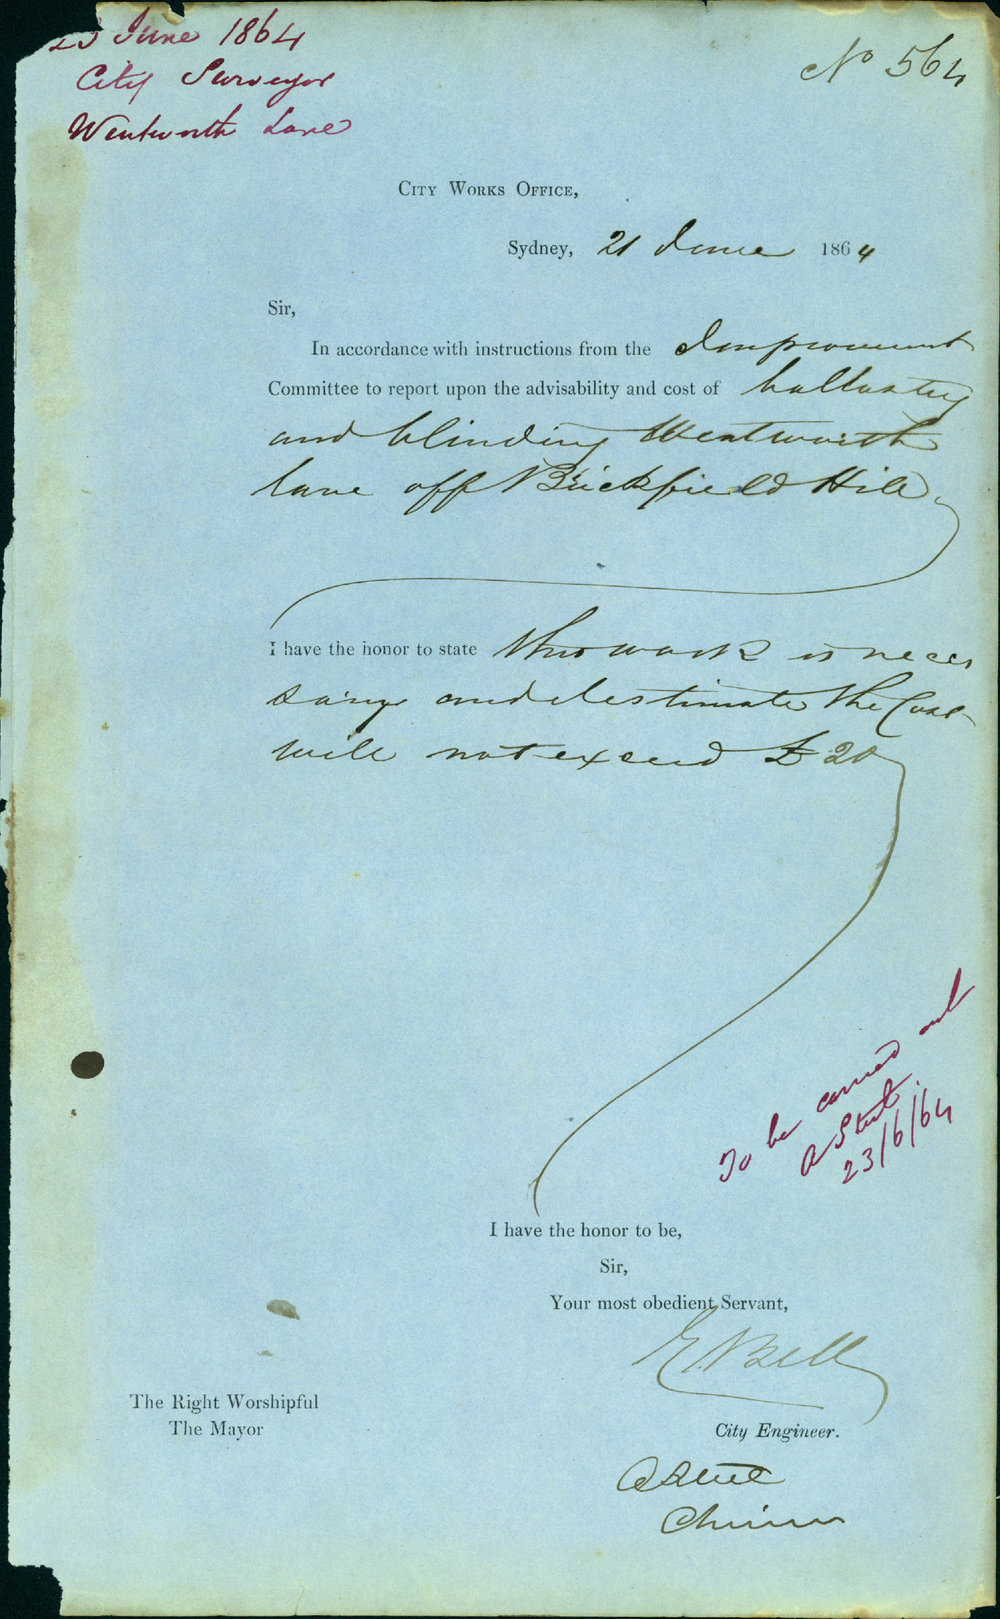 23 June 1864
City Surveyor
Wentworth Lane
No 564
CITY WORKS OFFICE,
Sydney, 21 June 1864
Sir,
In accordance with instructions from the Improvement
Committee to report upon the advisability and cost of ballasting
and blinding Wentworth
lane off Brickfield Hill.
I have the honor to state this work is neces
sary and I estimate the Cost
will not exceed £20
To be carried out
23/6/64
I have the honor to be,
Sir,
Your most obedient Servant,
E Bell
City Engineer.
The Right Worshipful
The Mayor